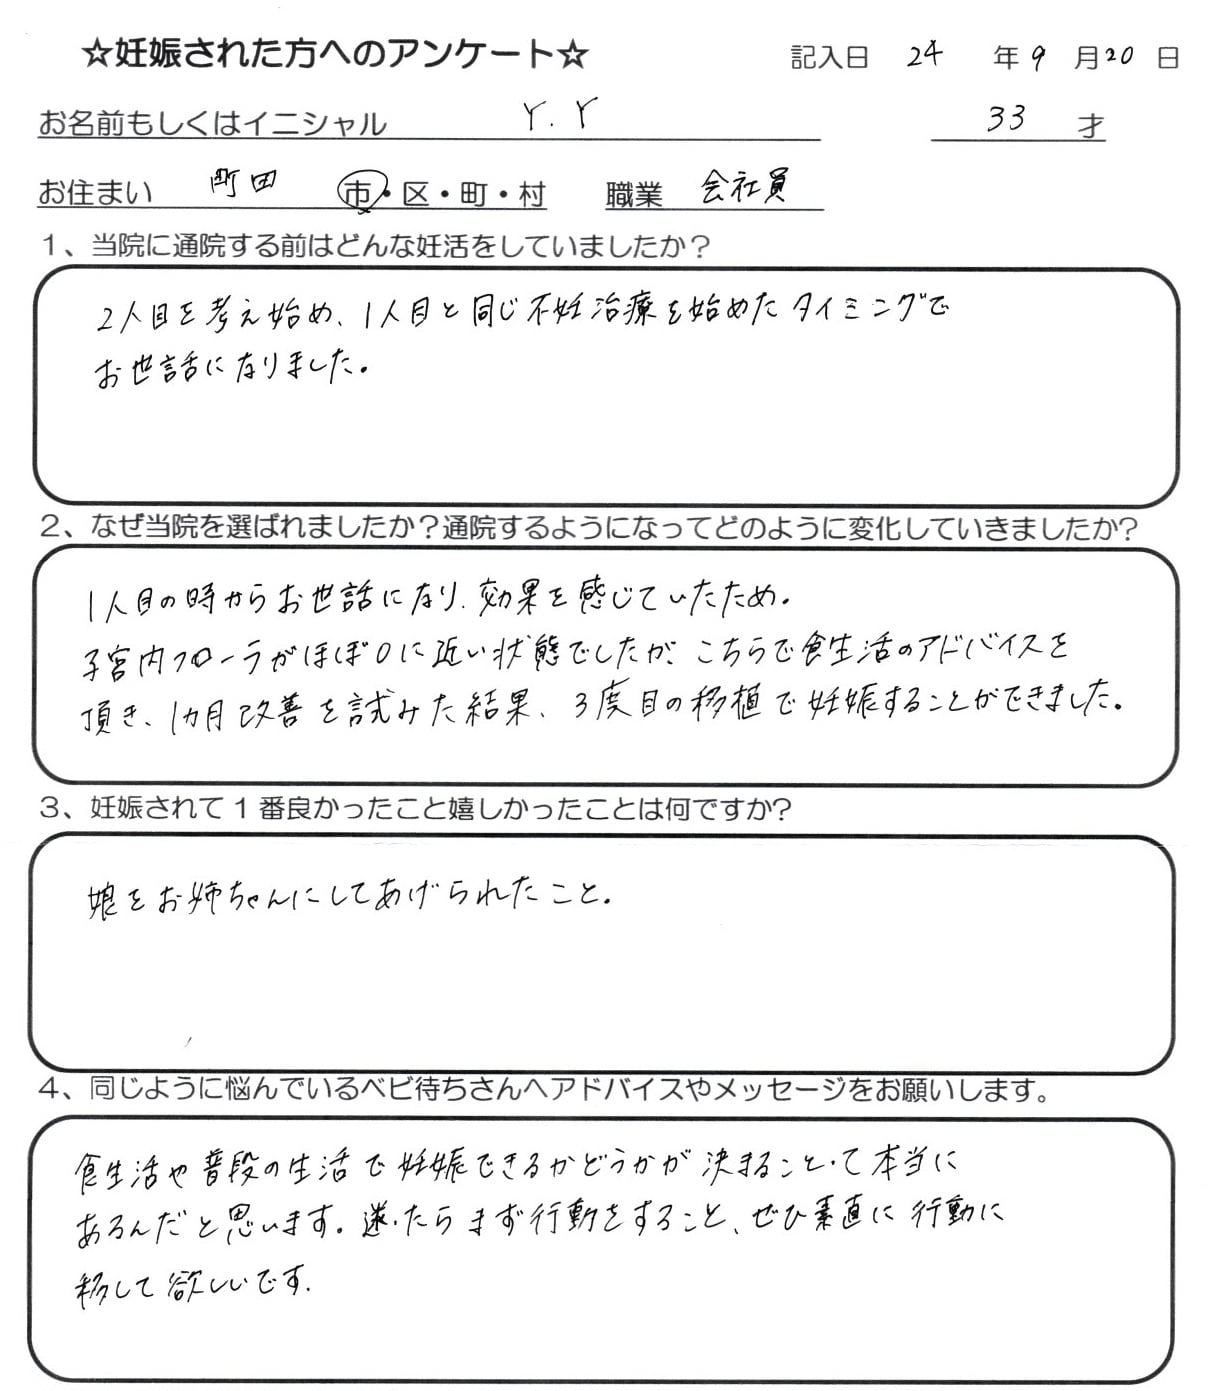 ☆妊娠された方へのアンケート☆ 記入日 24 年 9 月 20 日
お名前もしくはイニシャル Y.Y 33 才
お住まい 町田 市・区・町・村 職業 会社員
1、当院に通院する前はどんな妊活をしていましたか？
2人目を考え始め、1人目と同じ不妊治療を始めたタイミングで
お世話になりました。
2、なぜ当院を選ばれましたか？通院するようになってどのように変化していきましたか？
1人目の時からお世話になり、効果を感じていたため。
子宮内フローラがほぼ0に近い状態でしたが、こちらで食生活のアドバイスを
頂き、1ヵ月改善を試みた結果、3度目の移植で妊娠することができました。
3、妊娠されて1番良かったこと嬉しかったことは何ですか？
娘をお姉ちゃんにしてあげられたこと。
4、同じように悩んでいるベビ待ちさんへアドバイスやメッセージをお願いします。
食生活や普段の生活で妊娠できるかどうかが決まることって本当に
あるんだと思います。迷ったらまず行動をすること、ぜひ素直に行動に
移して欲しいです。